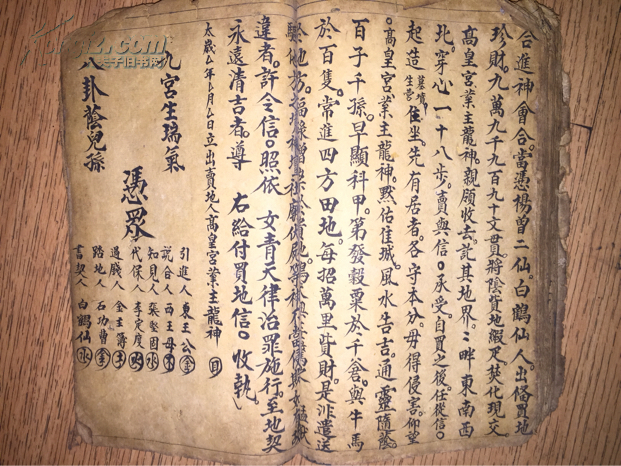 合進神會合。當憑楊曾二仙。白鶴仙人。出俻買地
珍財。九萬九千九百九十文貫。將陰貨地瑕疋。焚化現交。
高皇宮業主龍神。親領收去訖。其地界。〻畔東南西
北。穿心一十八步。賣與信〇承受。自買之後。任從信〇
起造墓墳生菅住坐。先有居者。各守本分。毋得侵害。仰望
〇高皇宮業主龍神。默佑佳城。風水吉吉。通靈隨蔭。
百子千孫。早顯科甲。第發穀粟於千倉。與牛馬
於百隻。常進四方田地。每招萬里貲財。是非遣送
於他方。福祿增
違者。許令信〇照依 女青天律治罪施行。至地契
永遠清吉者。遵 右給付買地信〇收執
太歲厶年厶月厶日立出賣地人高皇宮業主龍神
九宮生瑞氣
八卦蔭兒孫
憑眾
引進人 東王公
說合人 西王母
知見人 張堅固
代保人 李定度
過賤人 金主簿
踏地人 石功曹
書契人 白鶴仙